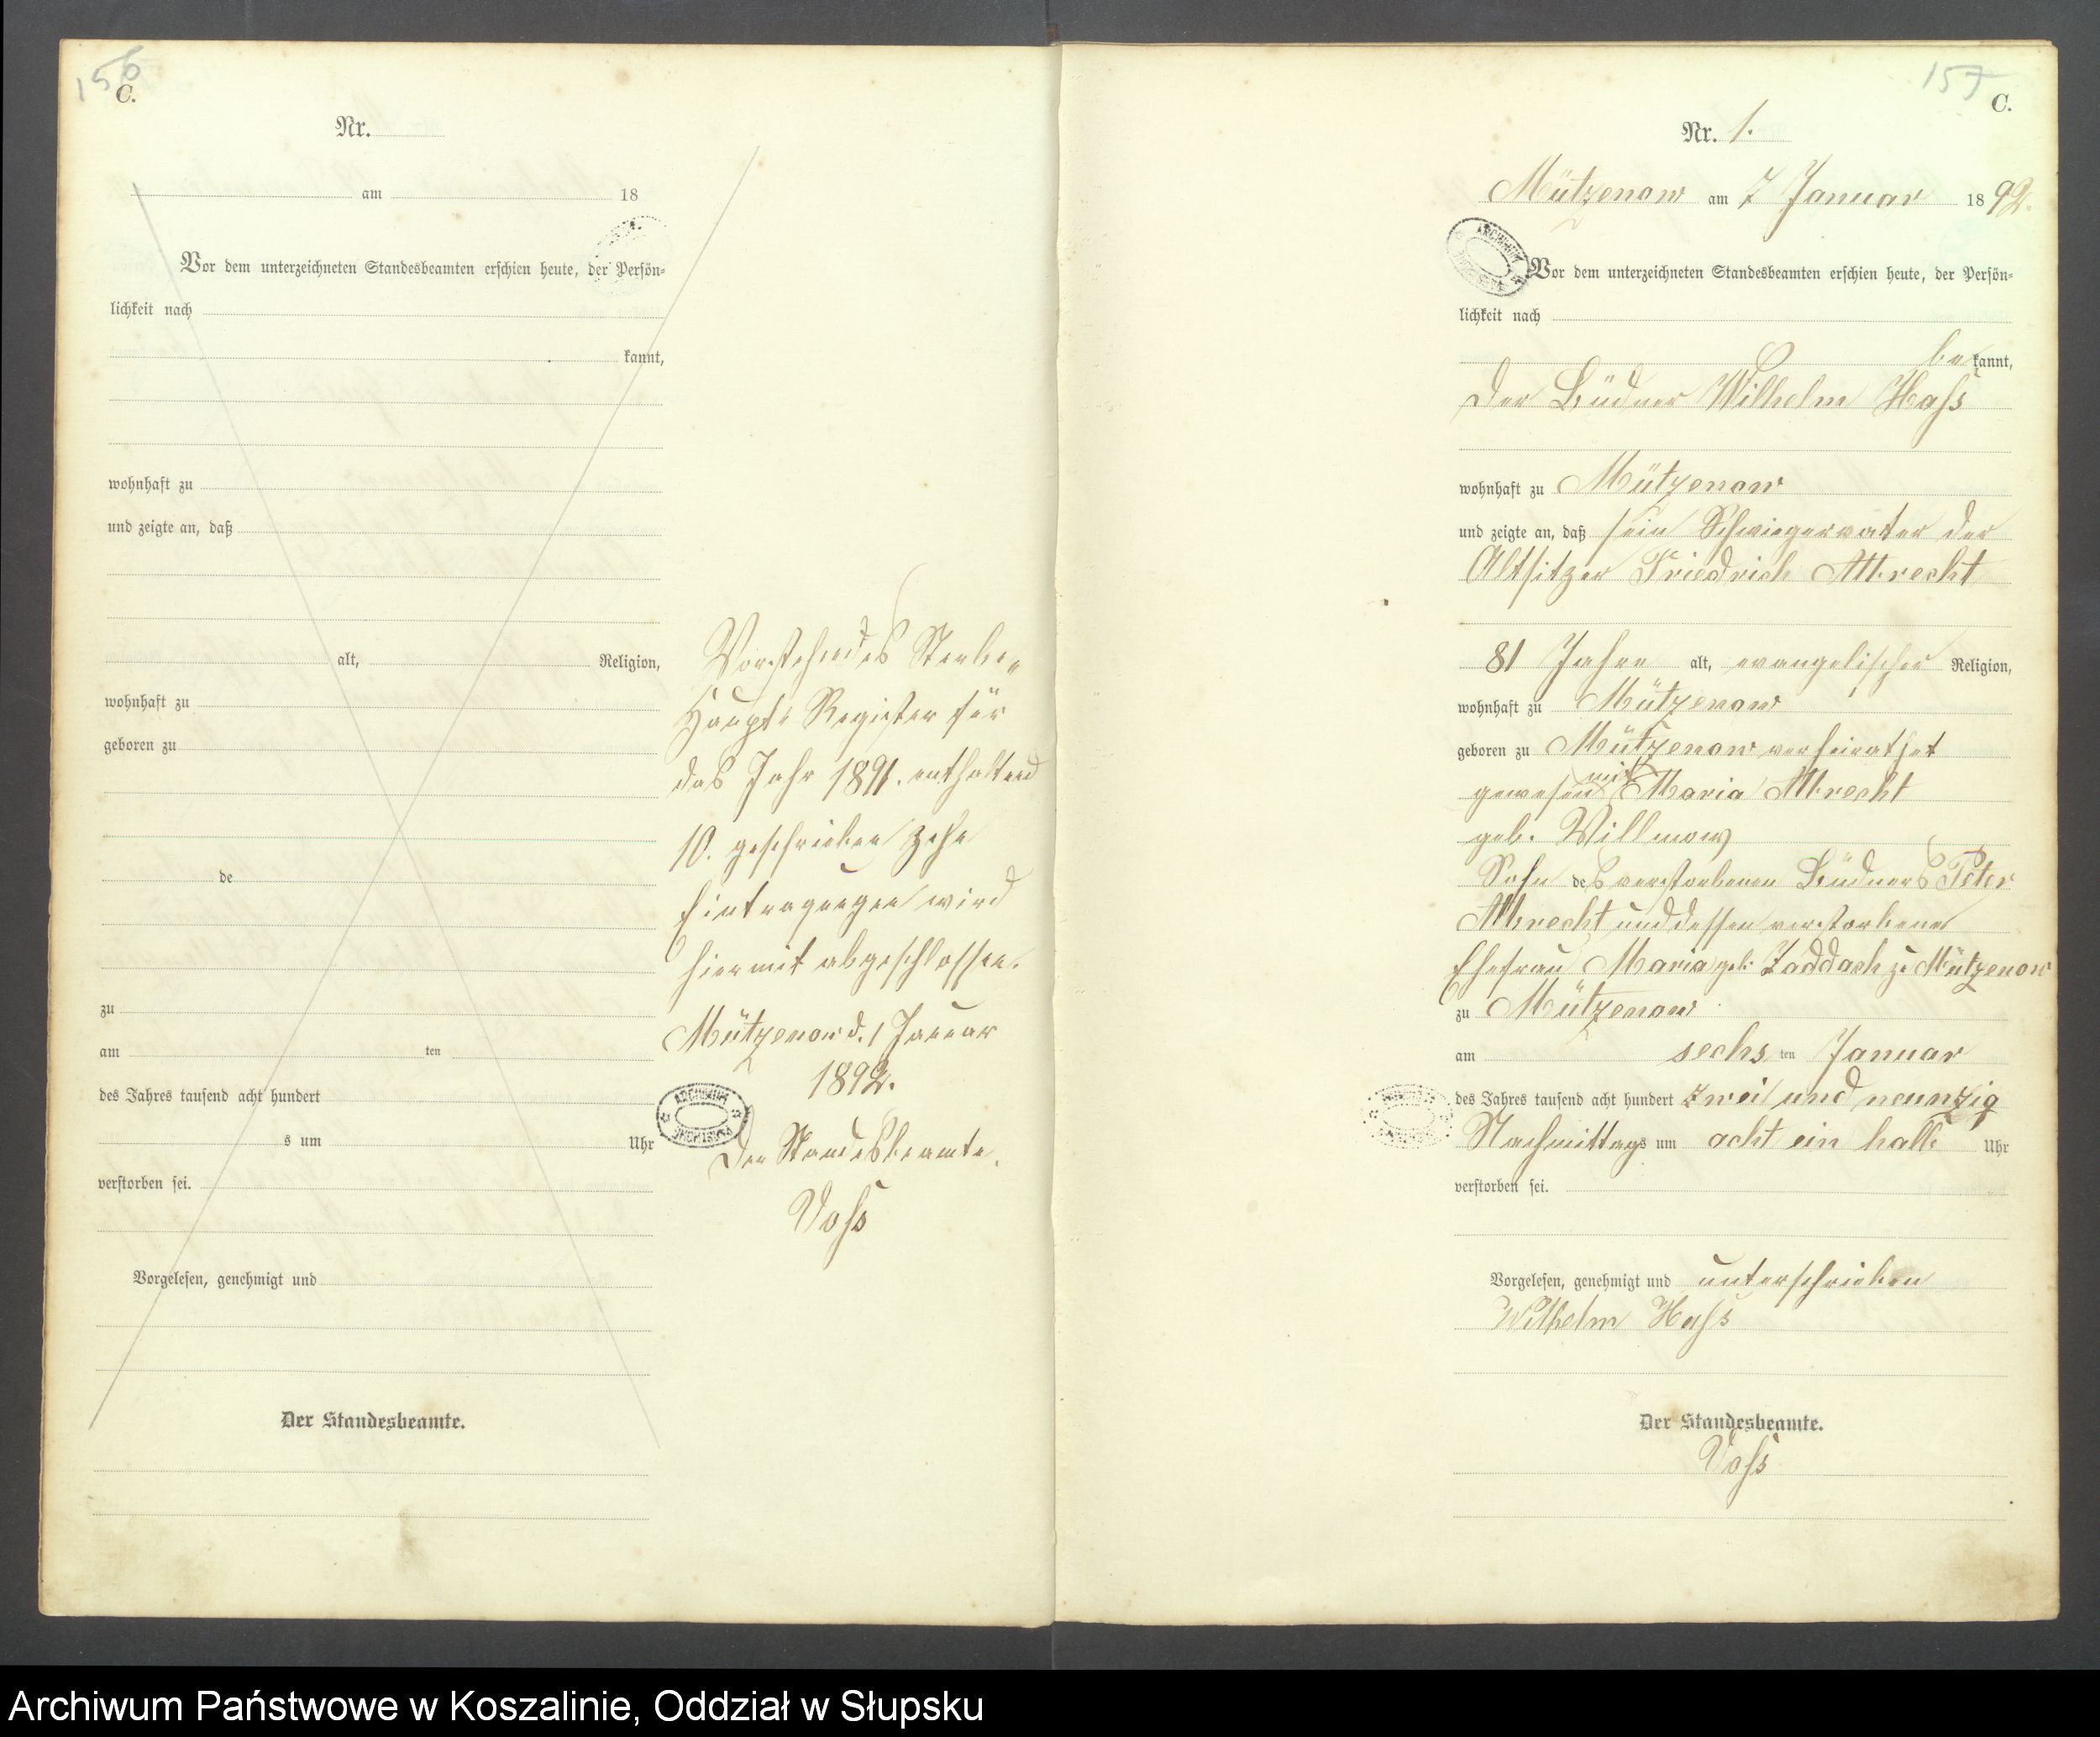 156
C.
Nr.
am 18
Vor dem unterzeichneten Standesbeamten erschien heute, der Persön-
lichkeit nach
kannt,
wohnhaft zu
und zeigte an, daß
alt, Religion,
wohnhaft zu
geboren zu
de
zu
am ten
des Jahres tausend acht hundert
s um Uhr
verstorben sei.
Vorgelesen, genehmigt und
Der Standesbeamte.
Vorstehendes Sterbe-
Haupt-Register für
das Jahr 1891. enthaltend
10. geschrieben zehn
Eintragungen wird
hiermit abgeschlossen.
Mützenow d. 1 Januar
1892.
Der Standesbeamte.
Voss
ARCHIWUM
157
C.
Nr. 1.
Mützenow am 7 Januar 1892.
ARCHIWUM
Vor dem unterzeichneten Standesbeamten erschien heute, der Persön-
lichkeit nach
bekannt,
der Büdner Wilhelm Hass
wohnhaft zu Mützenow
und zeigte an, daß sein Schwiegervater der
Altsitzer Friedrich Albrecht
81 Jahre alt, evangelischer Religion,
wohnhaft zu Mützenow
geboren zu Mützenow verheirathet
gewesen mit Maria Albrecht
geb. Willmow
Sohn des verstorbenen Büdners Peter
Albrecht und dessen verstorbener
Ehefrau Maria geb. Zaddach zu Mützenow
zu Mützenow
am sechs ten Januar
des Jahres tausend acht hundert zwei und neunzig
Nachmittags um acht ein halb Uhr
verstorben sei.
Vorgelesen, genehmigt und unterschrieben
Wilhelm Hass
Der Standesbeamte.
Voss
Archiwum Państwowe w Koszalinie, Oddział w Słupsku